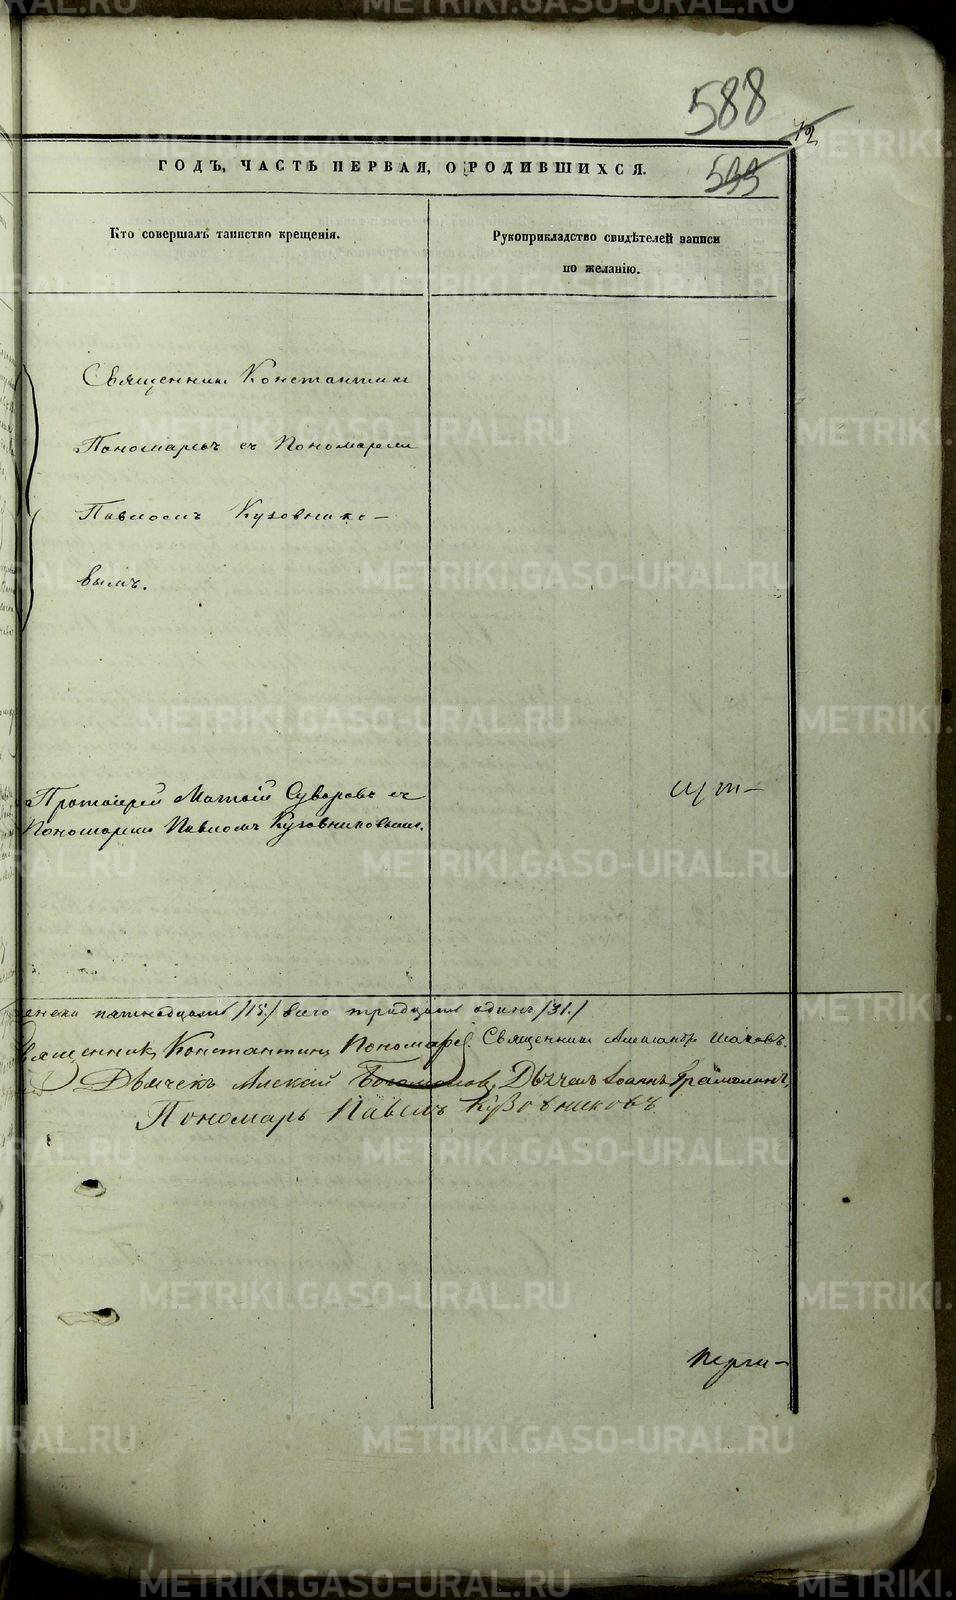 588
12
599
ГОДЪ, ЧАСТЬ ПЕРВАЯ, О РОДИВШИХСЯ.
Кто совершалъ таинство крещенія.
Рукоприкладство свидѣтелей записи
по желанію.
Священникъ Константинъ
Пономаревъ съ Пономаремъ
Павломъ Кузовнико-
вымъ.
Протоіерей Матѳій Суворовъ съ
Пономаремъ Павломъ Кузовниковымъ.
пятнадцать /15/ всего тридцать одинъ /31./
Священникъ Константинъ Пономаревъ. Священникъ Александръ
Дьячекъ Алексій Богомоловъ, Дьячекъ Іоаннъ
Пономарь Павелъ Кузовниковъ
METRIKI.GASO-URAL.RU